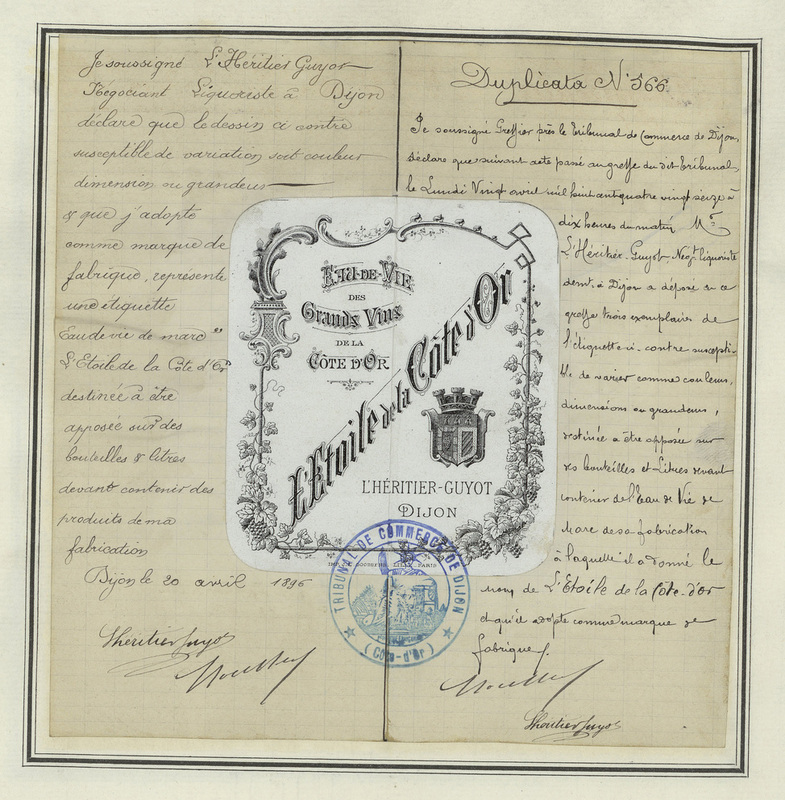 Je soussigné L'Héritier Guyot
Négociant Liquoriste à Dijon
déclare que le dessin ci contre
susceptible de variation soit couleur
dimension ou grandeur
& que j'adopte
comme marque de
fabrique, représente
une étiquette
Eau de vie de marc
L'Etoile de la Côte d'Or
destinée à être
apposée sur des
bouteilles & litres
devant contenir des
produits de ma
fabrication
Dijon le 20 avril 1896
Lhéritier Guyot
EAU-DE-VIE
DES
Grands Vins
DE LA
CÔTE D'OR
L'Etoile de la Côte d'Or
L'HÉRITIER-GUYOT
DIJON
PARIS
TRIBUNAL DE COMMERCE DE DIJON
(Côte-d'Or)
Duplicata N° 566
Je soussigné Greffier près le Tribunal de Commerce de Dijon,
déclare que suivant acte passé au greffe du dit Tribunal
le Lundi Vingt avril mil huit cent quatre vingt seize à
dix heures du matin Mr
L'Héritier-Guyot, Negt liquoriste
demt à Dijon a déposé à ce
greffe trois exemplaires de
l'étiquette ci-contre suscepti-
ble de varier comme couleurs,
dimensions ou grandeurs,
destinée à être apposée sur
des bouteilles et Litres devant
contenir de l'Eau de Vie de
Marc de sa fabrication
à laquelle il a donné le
nom de L'Etoile de la Côte-d'or
et qu'il adopte comme marque de
fabrique.
Lhéritier Guyot